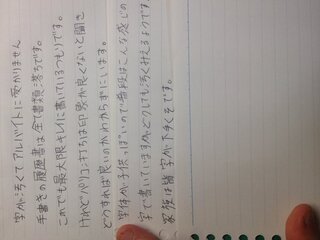 字が汚くてアルバイトに受かりません
手書きの履歴書は全て書類落ちです。
これでも最大限キレイに書いているつもりです。
けれどパソコン打ちは印象が良くないと聞き
どうすれば良いのかわからずにいます。
字体が子供っぽいので普段はこんな感じの
字で書いていますがどうしても汚くみえるようです
家族は皆字が下手くそです。